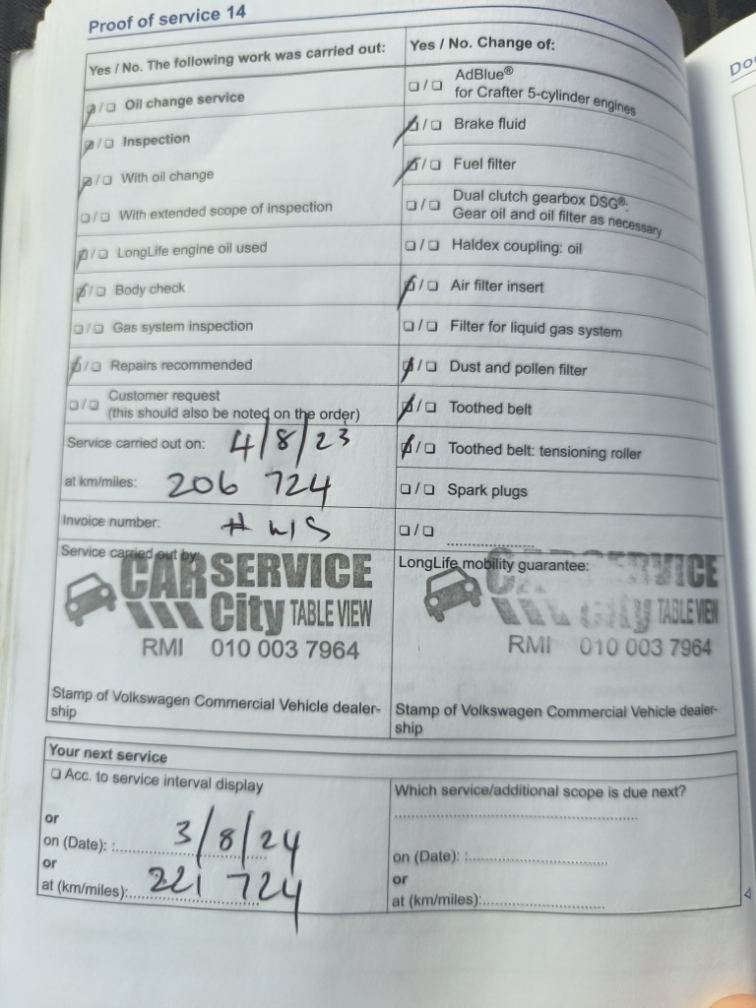 Proof of service 14
Yes / No. The following work was carried out:
☑/☐ Oil change service
☑/☐ Inspection
☑/☐ With oil change
☐/☐ With extended scope of inspection
☑/☐ LongLife engine oil used
☑/☐ Body check
☐/☐ Gas system inspection
☑/☐ Repairs recommended
☐/☐ Customer request
(this should also be noted on the order)
Service carried out on: 4/8/23
at km/miles: 206 724
Invoice number:
Service carried out by:
CAR SERVICE
City TABLE VIEW
RMI 010 003 7964
Stamp of Volkswagen Commercial Vehicle dealer-
ship
Yes / No. Change of:
☐/☐ AdBlue®
for Crafter 5-cylinder engines
☑/☐ Brake fluid
☑/☐ Fuel filter
☐/☐ Dual clutch gearbox DSG®:
Gear oil and oil filter as necessary
☐/☐ Haldex coupling: oil
☑/☐ Air filter insert
☐/☐ Filter for liquid gas system
☑/☐ Dust and pollen filter
☑/☐ Toothed belt
☑/☐ Toothed belt: tensioning roller
☐/☐ Spark plugs
☐/☐
LongLife mobility guarantee:
CAR SERVICE
City TABLE VIEW
RMI 010 003 7964
Stamp of Volkswagen Commercial Vehicle dealer-
ship
Your next service
☐ Acc. to service interval display
or
on (Date): 3/8/24
or
at (km/miles): 221 724
Which service/additional scope is due next?
on (Date):
or
at (km/miles):